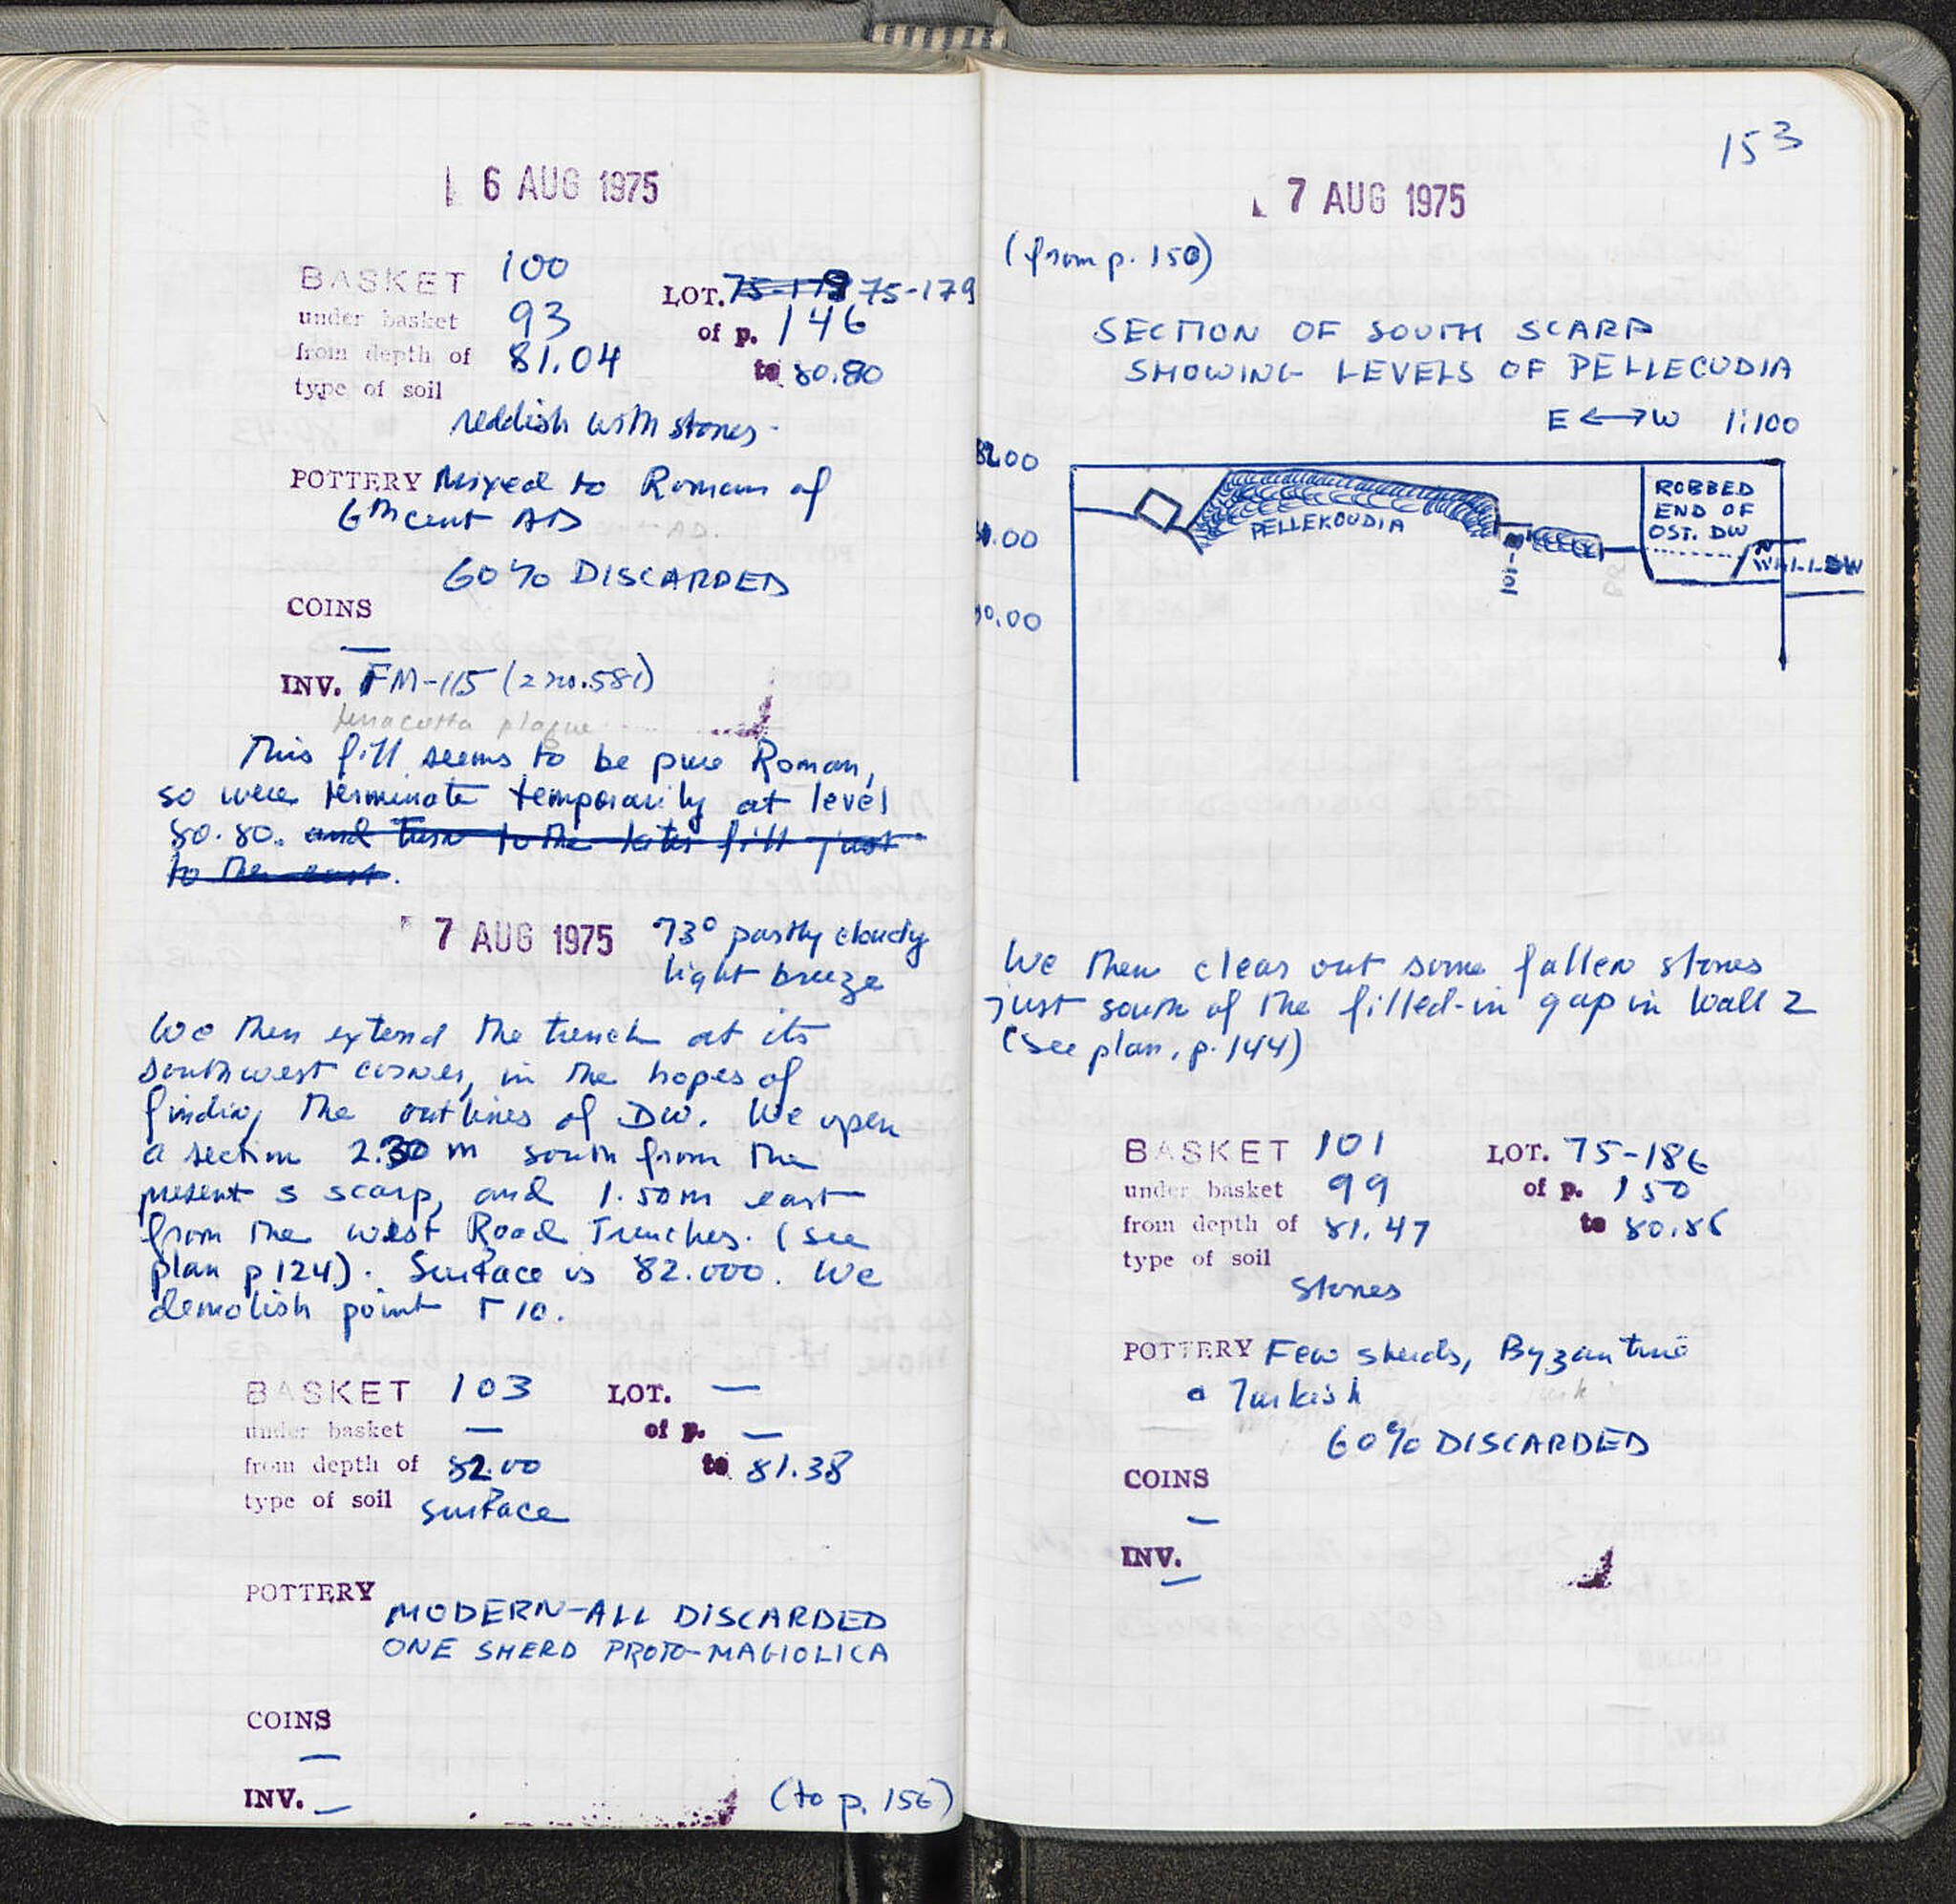 6 AUG 1975
BASKET 100 LOT. 75-179 75-179
under basket 93 of p. 146
from depth of 81.04 to 80.80
type of soil
reddish with stones.
POTTERY Mixed to Roman of
6th cent AD
60% DISCARDED
COINS
—
INV. FM-115 (2 no. 581)
terracotta plaque
This fill seems to be pure Roman,
so were terminate temporarily at level
80.80. and turn to the later fill just
to the east.
7 AUG 1975 73° partly cloudy
light breeze
We then extend the trench at its
southwest corner, in the hopes of
finding the outlines of DW. We open
a section 2.30 m south from the
present s scarp, and 1.50m east
from the west Road Trenches. (see
plan p 124). Surface is 82.000. We
demolish point Γ 10.
BASKET 103 LOT. —
under basket — of p. —
from depth of 82.00 to 81.38
type of soil surface
POTTERY
MODERN-ALL DISCARDED
ONE SHERD PROTO-MAGIOLICA
COINS
—
INV. —
(to p. 156)
153
7 AUG 1975
(from p. 150)
SECTION OF SOUTH SCARP
SHOWING LEVELS OF PELLECUDIA
E ⟷ W 1:100
82.00
.00
.00
PELLEKOUDIA
101
99
ROBBED
END OF
OST. DW
WALL DW
We then clear out some fallen stones
just south of the filled-in gap in wall 2
(see plan, p. 144)
BASKET 101 LOT. 75-186
under basket 99 of p. 150
from depth of 81.47 to 80.86
type of soil
stones
POTTERY Few sherds, Byzantine
a Turkish
60% DISCARDED
COINS
—
INV.
—